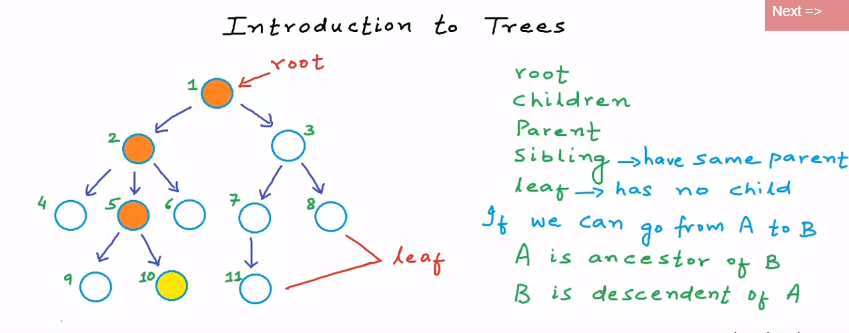 Next =>
Introduction to Trees
root
1
2
3
4
5
6
7
8
9
10
11
leaf
root
children
Parent
Sibling → have same parent
leaf → has no child
If we can go from A to B
A is ancestor of B
B is descendent of A